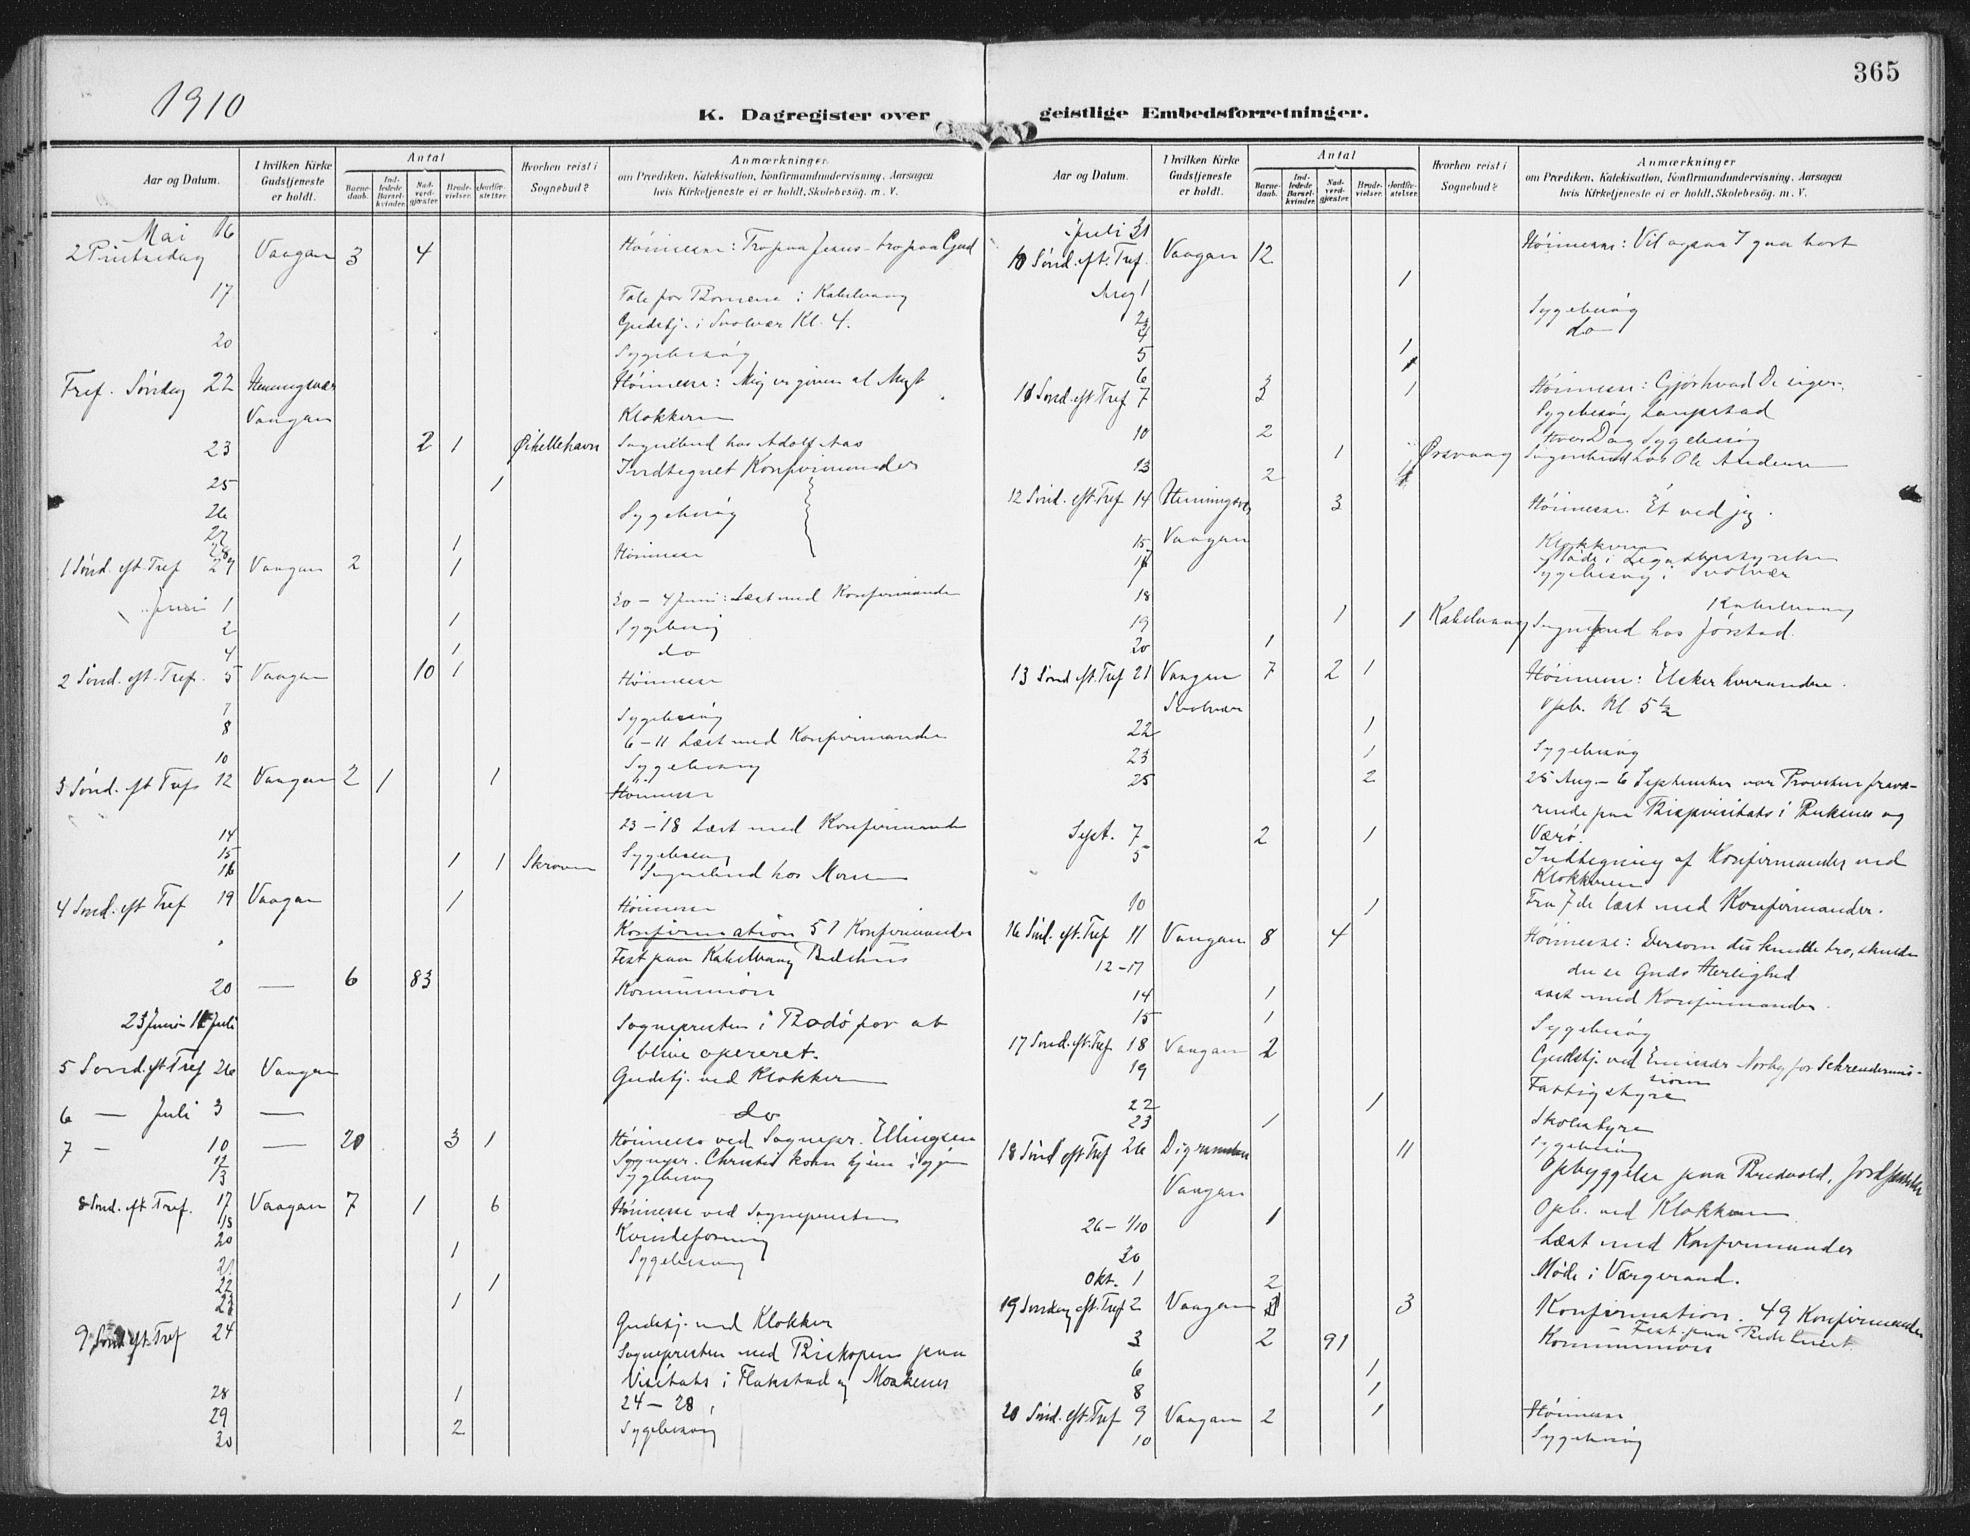 1910
365
K. Dagregister over geistlige Embedsforretninger.
Aar og Datum. I hvilken Kirke Gudstjeneste er holdt. Antal Barnedaab. Indledede Barselkvinder. Nadverdgjæster. Brudevielser. Jordfæstelser. Hvorhen reist i Sognebud? Anmærkninger om Prædiken, Katekisation, Konfirmandundervisning, Aarsagen hvis Kirketjeneste ei er holdt, Skolebesøg. m. V.
Mai 16
2 Pintsedag Vaagan 3 4 Høimesse: Tro paa Jesus - tro paa Gud
17 Tale for Børnene i Kabelvaag
Gudstj. i Svolvær Kl. 4.
20 Sygebesøg
Tref. Søndag 22 Henningsvær Høimesse: Mig er given al Magt
Vaagan Klokkeren
23 2 1 Sognebud hos Adolf Aas
Indtegnet Konfirmander
25 1
26 Sygebesøg
27
28 1
1 Sønd. eft. Tref 29 Vaagan 2 1 Høimesse
Juni 1 30 - 4 Juni: Læst med Konfirmander
2 1 Sygebesøg
4 1 do
2 Sønd. eft. Tref. 5 Vaagan 10 1 Høimesse
7 Sygebesøg
8 6 - 11 Læst med Konfirmander
10 Sygebesøg
3 Sønd. eft Tref 12 Vaagan 2 1 1 Høimesse
14 - 18 Læst med Konfirmander
15 Sygebesøg
16 1 1 Skroven Sognebud hos
4 Sønd. eft Tref 19 Vaagan 1 Høimesse
Konfirmation 51 Konfirmander
Fest paa Kabelvaag Bedehus
20 — 6 83 Kommunion
23 Juni - Juli Sognepresten i Bodø for at
blive opereret.
5 Sønd. eft Tref 26 Vaagan Gudstj. ved Klokker
6 — Juli 3 — do
7 - 10 — 20 3 1 Høimesse ved Sognepr. Ellingsen
12 Sognepr. Christie kom hjem igjen
13 Sygebesøg
8 Sønd. eft. Tref. 17 Vaagan 7 1 6 Høimesse ved Sognepresten
18 Kvindeforening
20 1 Sygebesøg
21
22 1
23 1
9 Sønd. eft. Tref 24 Gudstj. ved Klokker
Sognepresten med Biskopen paa
Visitats i Flakstad og Moskenes
28 1 24 - 28
29 2 Sygebesøg
30
Aar og Datum. I hvilken Kirke Gudstjeneste er holdt. Antal Barnedaab. Indledede Barselkvinder. Nadverdgjæster. Brudevielser. Jordfæstelser. Hvorhen reist i Sognebud? Anmærkninger om Prædiken, Katekisation, Konfirmandundervisning, Aarsagen hvis Kirketjeneste ei er holdt, Skolebesøg. m. V.
Juli 31
10 Sønd. eft. Tref. Vaagan 12 Høimesse: Vil ogsaa I gaa bort
Aug 1 1
2 Sygebesøg
4 do
5 1
6
11 Sønd. eft Tref 7 3 1 Høimesse: Gjør hvad De siger.
Sygebesøg
10 2 Hver Dag Sygebesøg
13 2 1 Ørsvaag Sognebud hos Ole Andersen
12 Sønd. eft. Tref 14 Henningsvær 3 Høimesse. Et ved jeg.
15 Vaagan Klokkeren
16 Møde i Legatbestyrelse
17 Sygebesøg i Svolvær
18 Kabelvaag
19 1 1 Kabelvaag Sognebud hos Jørstad.
20 1
13 Sønd eft. Tref 21 Vaagan 7 2 1 Høimesse: Elsker hverandre.
Svolvær Opb. Kl 5 ½
22 1
23 1 Sygebesøg
25 2 25 Aug - 6 September var Provsten fravæ-
rende paa Bispevisitats i Buksnes og
Sept. 7 2 1 Værø.
5 Indtegning af Konfirmander ved
Klokkeren
10 1 Fra 7de læst med Konfirmander.
16 Sønd. eft. Tref 11 Vaagan 8 4 Høimesse: Dersom du kunde tro, skulde
12 - 17 du se Guds Herlighed
14 1 Læst med Konfirmander.
15 1 Sygebesøg
17 Sønd. eft. Tref 18 Vaagan 2 Gudstj. ved Emissær Norby for Sørendemis-
sion
19 Fattigstyre
22 1
23 1 Skolestyre
Sygebesøg
18 Sønd eft Tref 26 Digermulen 11 Opbyggelse paa Bredvold, Jordfæstelse
Vaagan Opb. ved Klokkeren
26 - 1/10 1 Læst med Konfirmander
30
Okt. 1 2 Møde i Værgeraad.
19 Søndag eft. Tref 2 Vaagan 3 Konfirmation. 49 Konfirmander
Fest paa Bedehuset
3 2 91 Kommunion
6 1
8 1
20 Sønd. eft. Tref 9 Vaagan 2 1 Høimesse
10 Sygebesøg